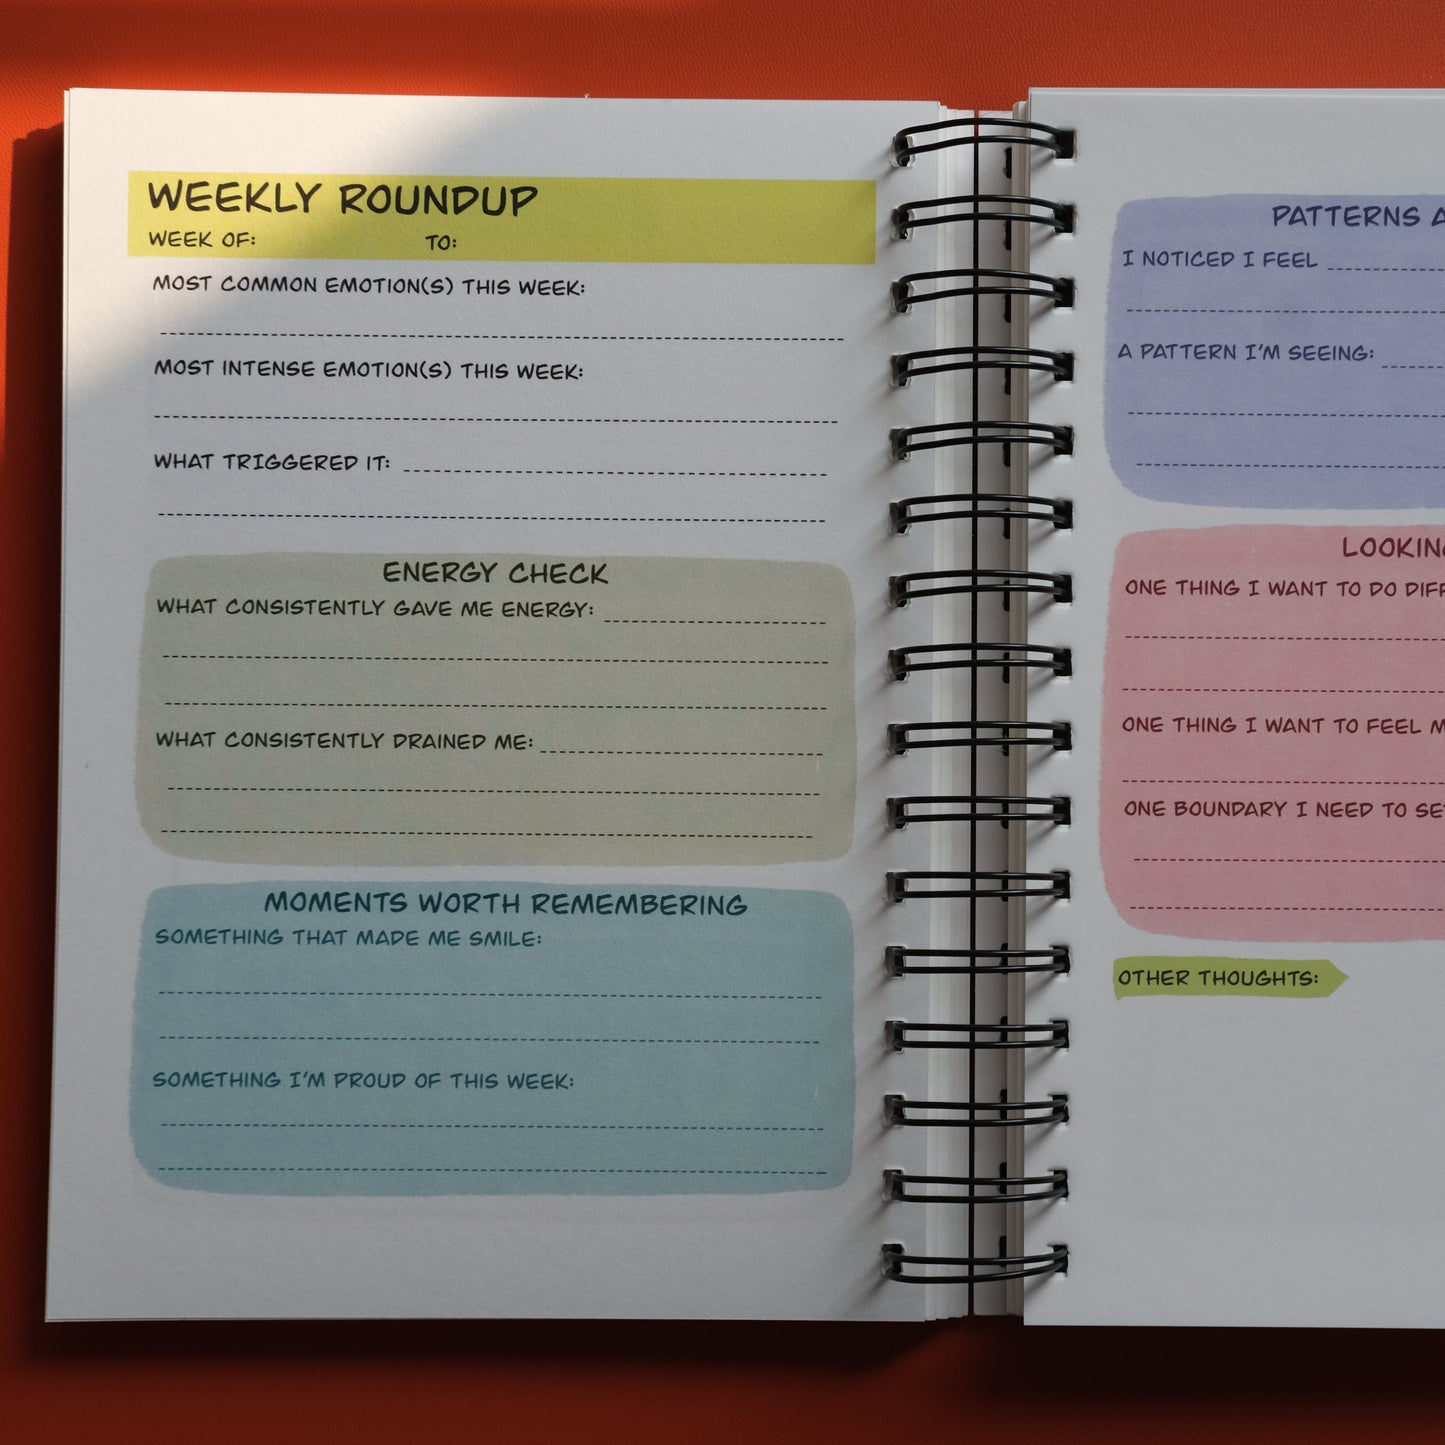 WEEKLY ROUNDUP
WEEK OF: TO:
MOST COMMON EMOTION(S) THIS WEEK:
MOST INTENSE EMOTION(S) THIS WEEK:
WHAT TRIGGERED IT:
ENERGY CHECK
WHAT CONSISTENTLY GAVE ME ENERGY:
WHAT CONSISTENTLY DRAINED ME:
MOMENTS WORTH REMEMBERING
SOMETHING THAT MADE ME SMILE:
SOMETHING I'M PROUD OF THIS WEEK:
PATTERNS
I NOTICED I FEEL
A PATTERN I'M SEEING:
ONE THING I WANT TO DO
ONE THING I WANT TO FEEL
ONE BOUNDARY I NEED TO
OTHER THOUGHTS: